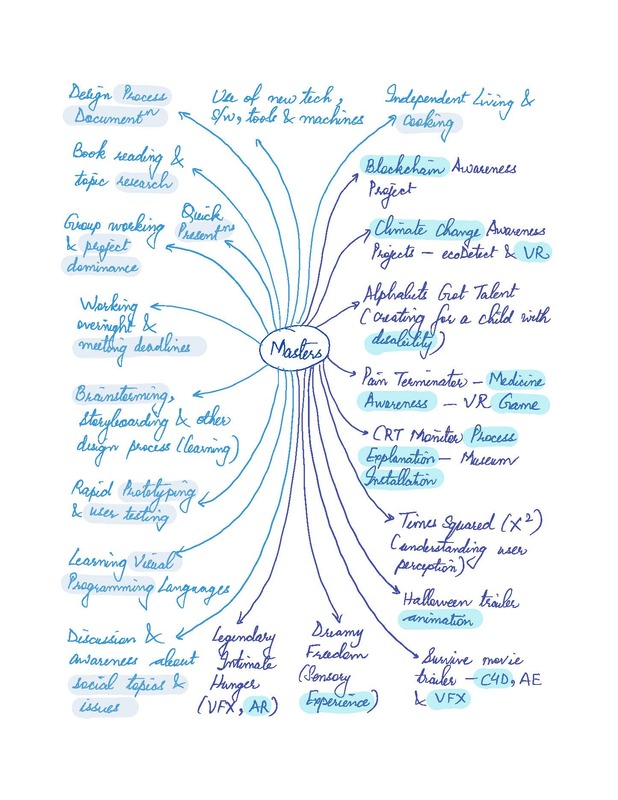 Design Process
Documentⁿ
Use of new tech,
S/w, tools & machines
Independent Living &
Cooking
Book reading &
topic research
Blockchain Awareness
Project
Group working
& project
dominance
Quick
Presentⁿˢ
Climate Change Awareness
Projects – ecoDetect & VR
Working
overnight &
meeting deadlines
Alphabets Got Talent
(Creating for a child with
disability)
Masters
Pain Terminator – Medicine
Awareness – VR Game
Brainstorming,
Storyboarding & other
design process (learning)
CRT Monitor Process
Explanation – Museum
Installation
Rapid Prototyping
& user testing
Times Squared (X²)
(understanding user
perception)
Learning Visual
Programming Languages
Halloween trailer
animation
Discussion &
awareness about
social topics &
issues
Legendary
Intimate
Hunger
(VFX, AR)
Dreamy
Freedom
(Sensory
Experience)
Survive movie
trailer – C4D, AE
& VFX